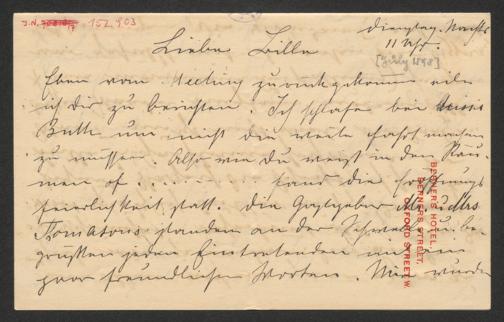 J.N. 152.903
Dienstag Nachts
11 Uhr.
[July 1898]
Liebe Bille
Eben vom Meeting zurückgekommen eile
ich dir zu berichten. Ich schlafe bei
Butt um nicht die weite Fahrt machen
zu müssen. Also wie du weißt in den Räu-
men of ...... fand die Eröffnungs
feierlichkeit statt. Die Gastgeber Mrs.
standen an der Schwelle u. be-
grüßten jeden Eintretenden mit ein
paar freundlichen Worten. wurde
BERNERS HOTEL,
BERNERS STREET,
OXFORD STREET. W.